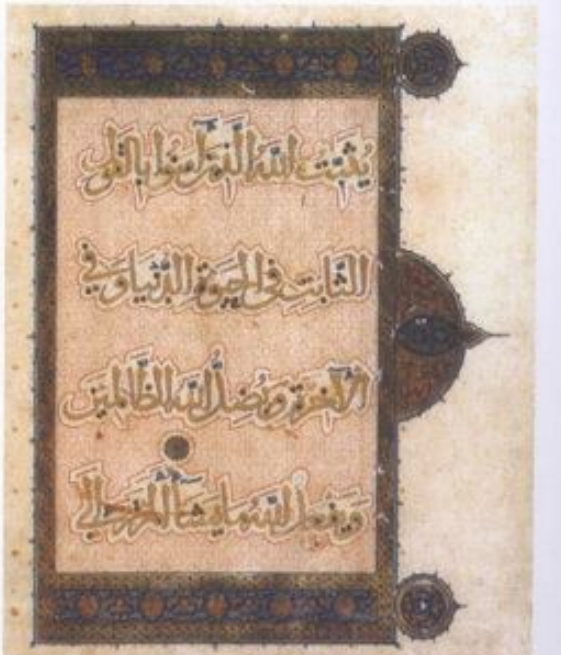 يُثَبِّتُ اللهُ الَّذِينَ آمَنُوا بِالْقَوْلِ
الثَّابِتِ فِي الْحَيَوةِ الدُّنْيَا وَفِي
الْآخِرَةِ وَيُضِلُّ اللهُ الظَّالِمِينَ
وَيَفْعَلُ اللهُ مَا يَشَاءُ أَلَمْ تَرَ إِلَى